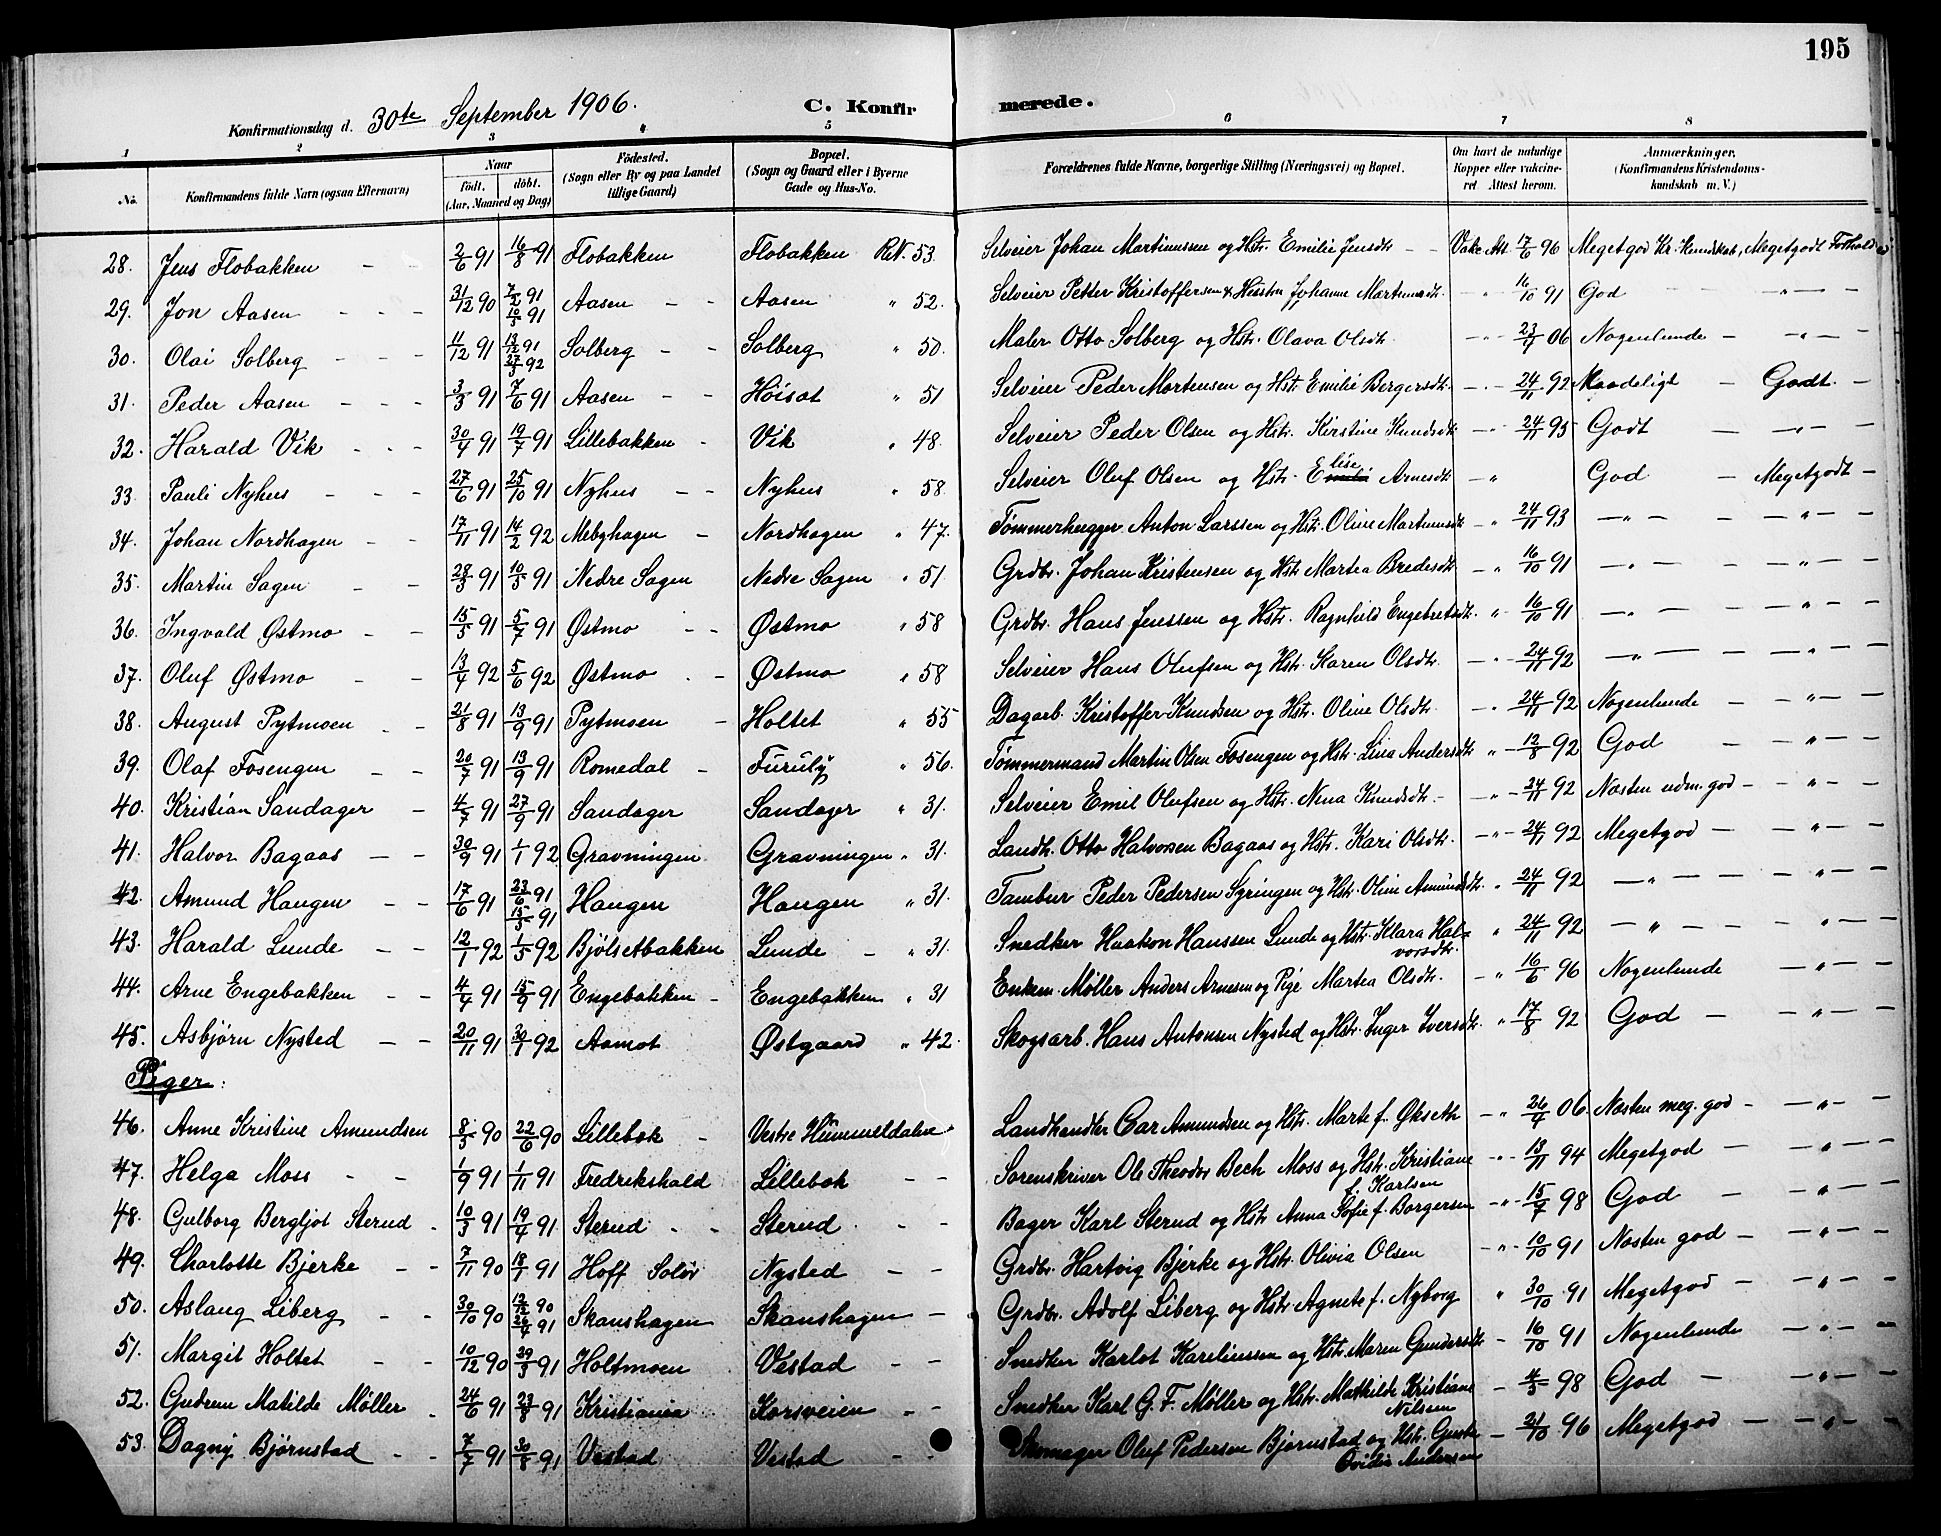 195
Konfirmationsdag d. 30te September 1906. C. Konfirmerede.
1 2 3 4 5 6 7 8
No. Konfirmandens fulde Navn (ogsaa Efternavn) Naar født. døbt. (Aar, Maaned og Dag) Fødested. (Sogn eller By og paa Landet tillige Gaard) Bopæl. (Sogn og Gaard eller i Byerne Gade og Hus-No. Forældrenes fulde Navne, borgerlige Stilling (Næringsvei) og Bopæl. Om havt de naturlige Kopper eller vaccineret Attest herom. Anmærkninger. (Konfirmandens Kristendomskundskab m. V.)
28. Jens Flobakken 2/6 91 16/8 91 Flobakken Flobakken RN. 53. Selveier Johan Martinussen og Hstr. Emilie Jensdtr. Vakc. Att. 17/6 96 Megetgod Kr. Kundskab, Megetgodt Forhold
29. Jon Aasen 31/12 90 7/2 91 10/5 91 Aasen Aasen " 52. Selveier Petter Kristoffersen & Hustru Johanne Martinusdtr. " 16/10 91 God "
30. Olai Solberg 11/12 91 13/12 91 27/3 92 Solberg Solberg " 50. Maler Otto Solberg og Hstr. Olava Olsdtr. " 23/7 06 Nogenlunde "
31. Peder Aasen 3/3 91 7/6 91 Aasen Høisat " 51 Selveier Peder Mortensen og Hstr. Emilie Bergersdtr. " 24/11 92 Maadeligt Godt.
32. Harald Vik 30/4 91 19/7 91 Lillebakken Vik " 48. Selveier Peder Olsen og Hstr. Kirstine Knudsdtr. " 24/11 95 Godt "
33. Pauli Nyhus 27/6 91 25/10 91 Nyhus Nyhus " 58. Selveier Oluf Olsen og Hstr. Elise Arnesdtr. " God Megetgodt
34. Johan Nordhagen 17/11 91 14/2 92 Mebyhagen Nordhagen " 47. Tømmerhugger Anton Larssen og Hstr. Oline Martinusdtr. " 24/11 93 " "
35. Martin Sagen 28/3 91 10/5 91 Nedre Sagen Nedre Sagen " 51 Grdbr. Johan Kristensen og Hstr. Martea Bredesdtr. " 16/10 91 " "
36. Ingvald Østmo 15/5 91 5/7 91 Østmo Østmo " 58 Grdbr. Hans Jenssen og Hstr. Ragnhild Engebretsdtr. " 16/10 91 " "
37. Oluf Østmo 13/4 92 5/6 92 Østmo Østmo " 58 Selveier Hans Olufsen og Hstr. Karen Olsdtr. " 24/11 92 " "
38. August Pytmoen 21/8 91 13/9 91 Pytmoen Holtet " 55 Dagarb. Kristoffer Knudsen og Hstr. Oline Olsdtr. " 24/11 92 Nogenlunde "
39. Olaf Fosengen 20/7 91 13/9 91 Romedal Furuly " 56. Tømmermand Martin Olsen Fosengen og Hstr. Lina Andersdtr. " 12/8 92 God "
40. Kristian Sandager 4/7 91 27/9 91 Sandager Sandager " 31. Selveier Emil Olufsen og Hstr. Nina Knudsdtr. " 24/11 92 Næsten udm. god "
41. Halvor Bagaas 30/9 91 1/1 92 Gravningen Gravningen " 31. Landh. Otto Halvorsen Bagaas og Hstr. Kari Olsdtr. " 24/11 92 Megetgod "
42. Amund Haugen 17/6 91 23/6 91 15/5 91 Haugen Haugen " 31. Tambur Peder Pedersen Syringen og Hstr. Olin Amundsdtr. " 24/11 92 " "
43. Harald Lunde 12/1 92 1/5 92 Bjølsetbakken Lunde " 31. Snedker Haakon Hanssen Lunde og Hstr. Klara Halvorsdtr. " 24/11 92 " "
44. Arne Engebakken 4/4 91 15/9 91 Engebakken Engebakken " 31 Enkem. Møller Anders Arnesen og Pige Martea Olsdtr. " 16/6 96 Nogenlunde "
45. Asbjørn Nysted 20/11 91 30/1 92 Aamot Østgaard " 42. Skogsarb. Hans Antonsen Nysted og Hstr. Inger Iversdtr. " 17/8 92 God "
Piger:
46. Anne Kristine Amundsen 8/5 90 22/6 90 Lillebok Vestre Hummeldalen Landhandler Car Amundsen og Hstr. Marte f. Økseth " 26/4 06 Næsten meg. god "
47. Helga Moss 1/9 91 1/11 91 Fredrikshald Lillebok Sorenskriver Ole Theodor Bech Moss og Hstr. Kristiane f. Karlsen " 13/11 94 Megetgod "
48. Gulborg Bergljot Sterud 10/3 91 19/4 91 Sterud Sterud Bager Karl Sterud og Hstr. Anna Sofie f. Borgersen " 15/7 98 God "
49. Charlotte Bjerke 7/11 90 18/1 91 Hoff Solør Nysted Grdbr. Hartvig Bjerke og Hstr. Olivia Olsen " 10/10 91 Næsten god "
50. Aslaug Liberg 30/10 90 12/12 90 26/4 91 Skanshagen Skanshagen Grdbr. Adolf Liberg og Hstr. Agnete f. Nyborg " 30/10 91 Megetgod "
51. Margit Holtet 10/12 90 29/3 91 Holtmoen Vestad Snedker Karlot Kareliussen og Hstr. Maren Gundersdtr. 16/10 91 Nogenlunde "
52. Gudrun Matilde Møller 24/6 91 23/8 91 Kristiania Korsveien Snedker Karl G. F. Møller og Hstr. Mathilde Kristiane Nilsen 4/5 98 God "
53. Dagny Bjørnstad 7/7 91 30/8 91 Vestad Vestad Skomager Oluf Pedersen Bjørnstad og Hstr. Ovidia Andersen 21/10 96 Megetgod "